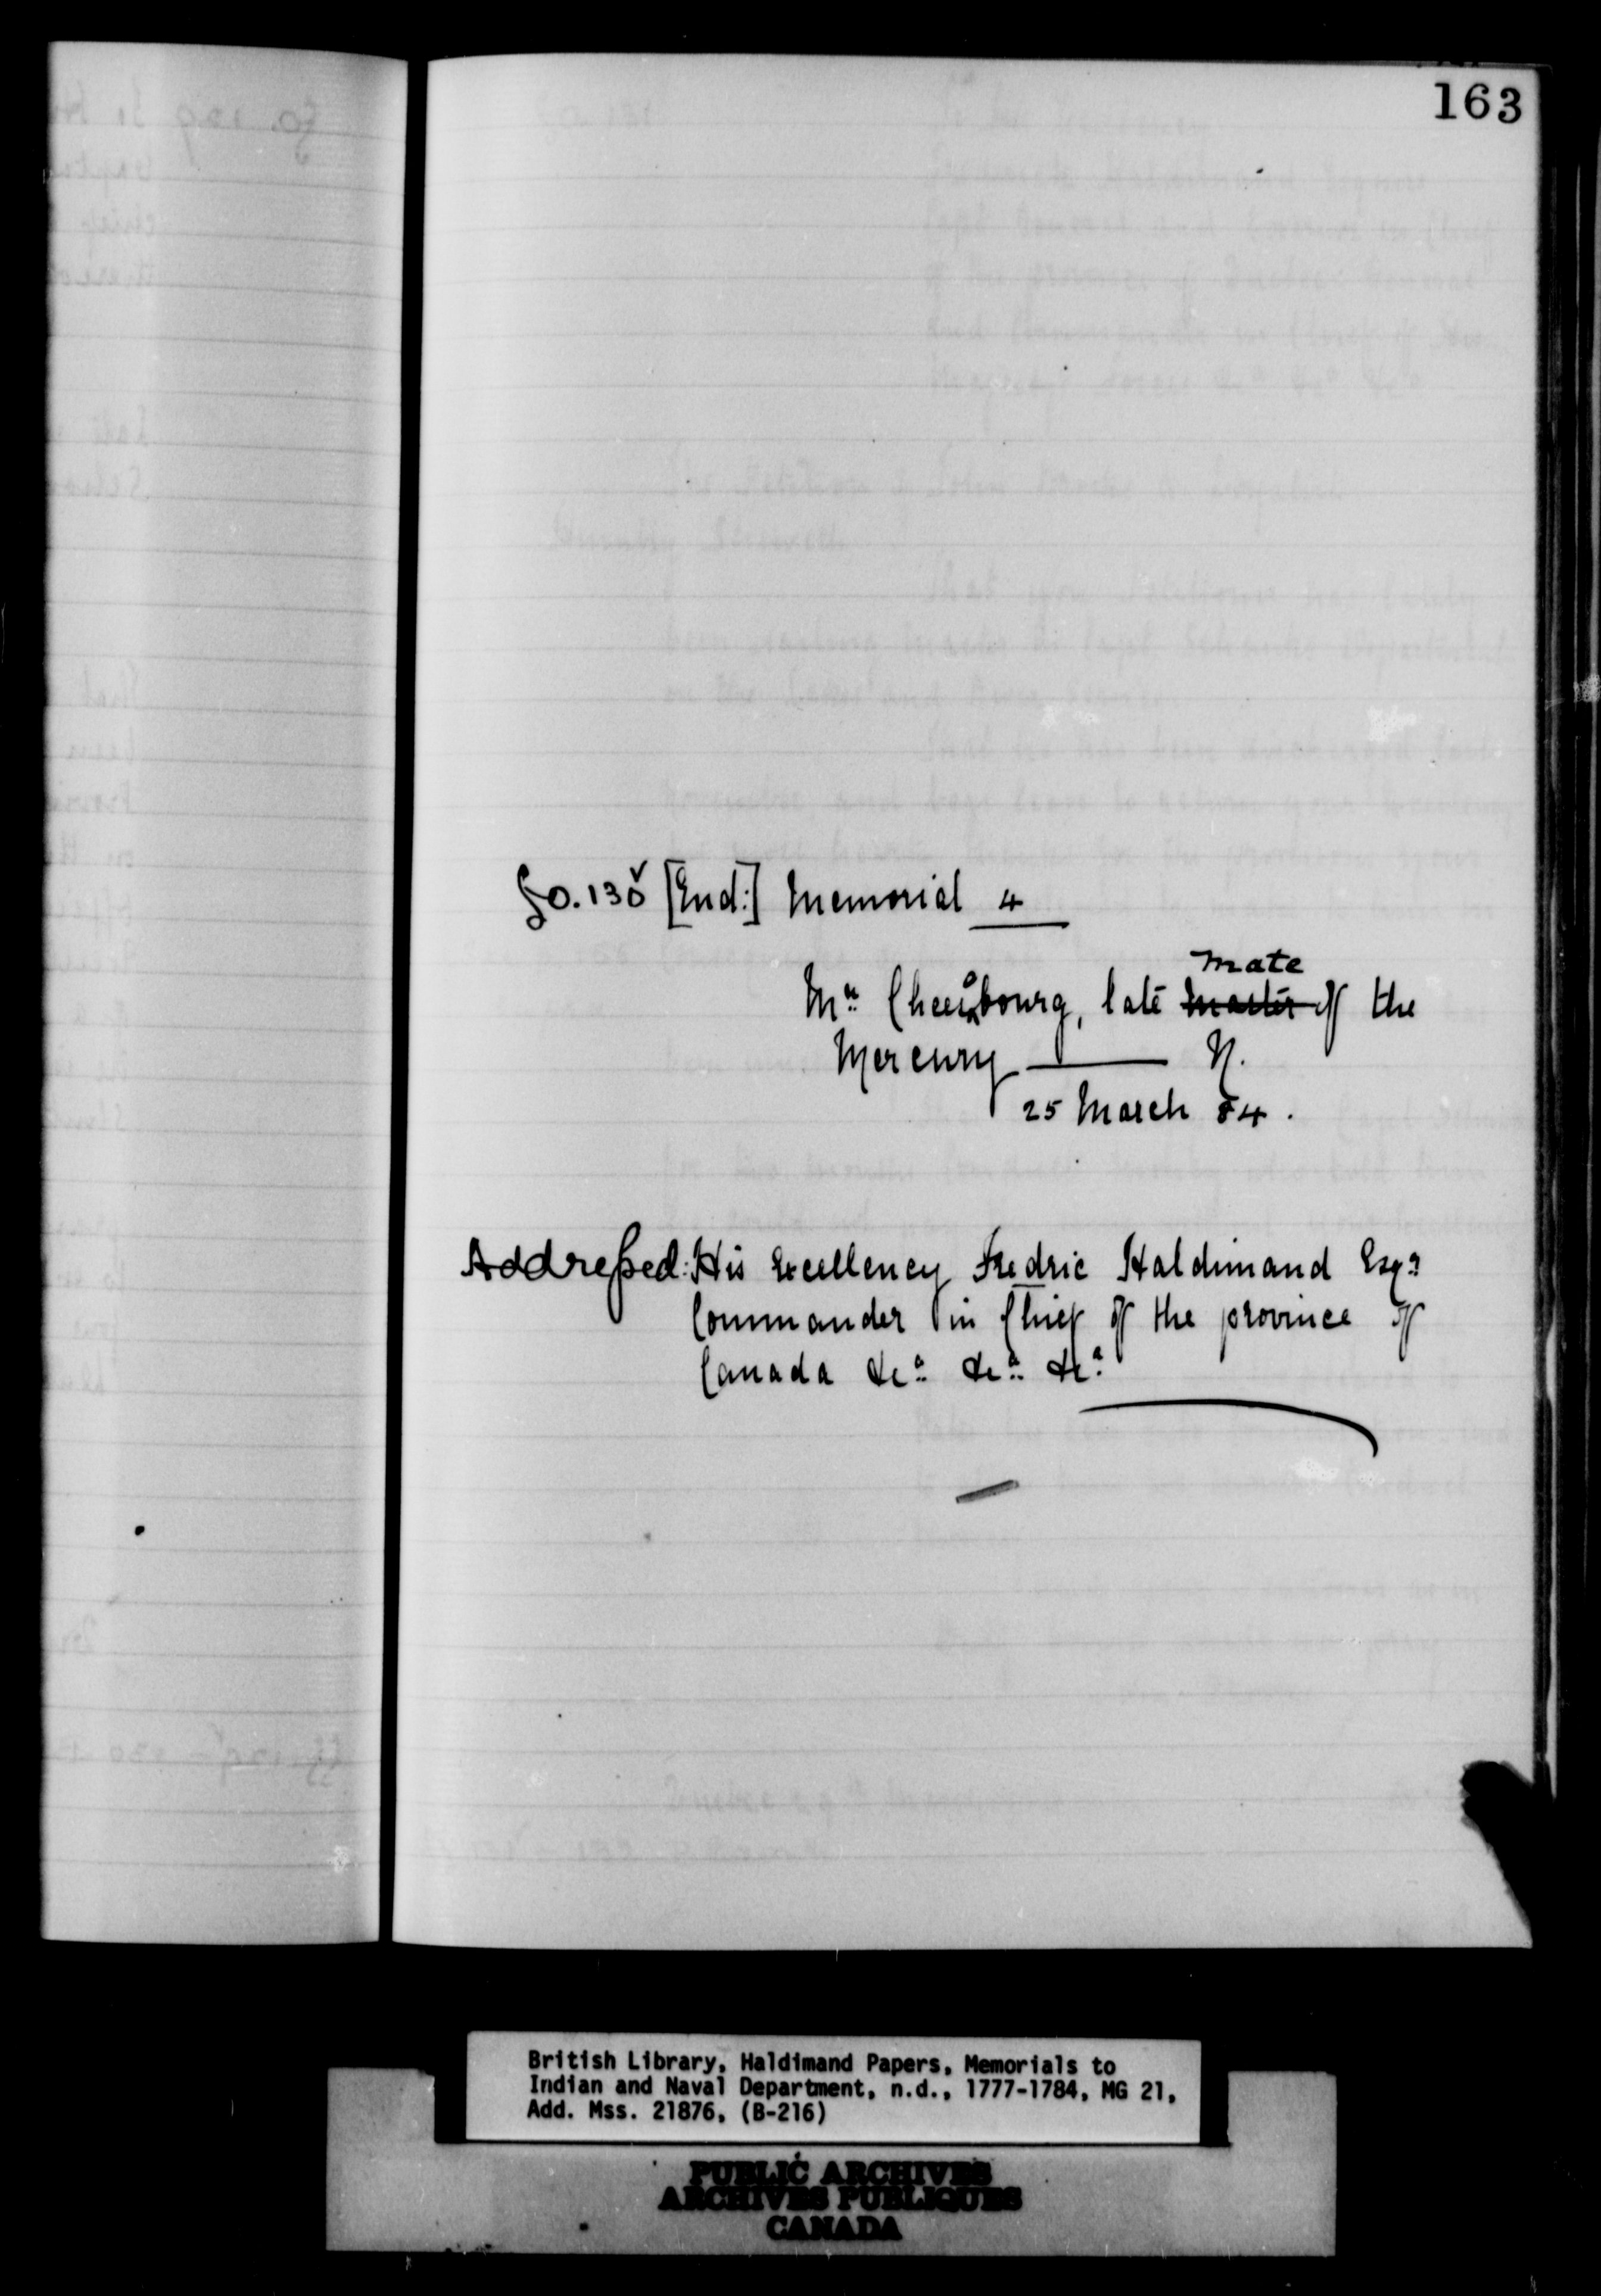 163
fo. 130v [End:] Memorial 4
Mr. Cheesbourg, late mate ~~Master~~ of the
Mercury ——— N.
25 March 84.
Addressed: His Excellency Fredric Haldimand Esqr.
Commander in Chief of the province of
Canada &ca. &ca. &ca.
British Library, Haldimand Papers, Memorials to
Indian and Naval Department, n.d., 1777-1784, MG 21,
Add. Mss. 21876, (B-216)
PUBLIC ARCHIVES
ARCHIVES PUBLIQUES
CANADA